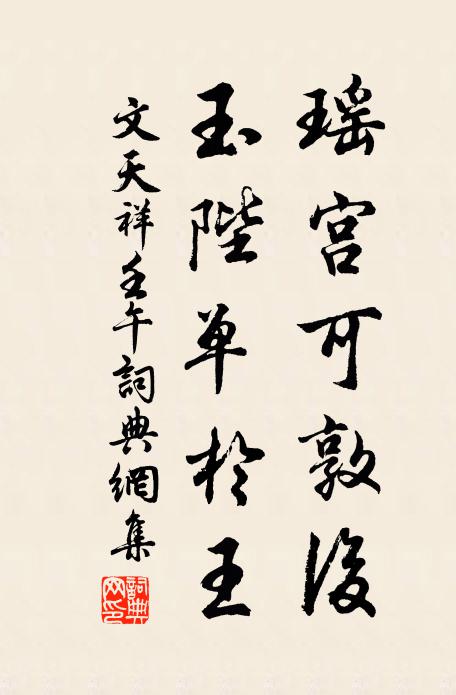 瑶宫可敦後
玉陛单於王
文天祥壬午詞典網集
詞典网印